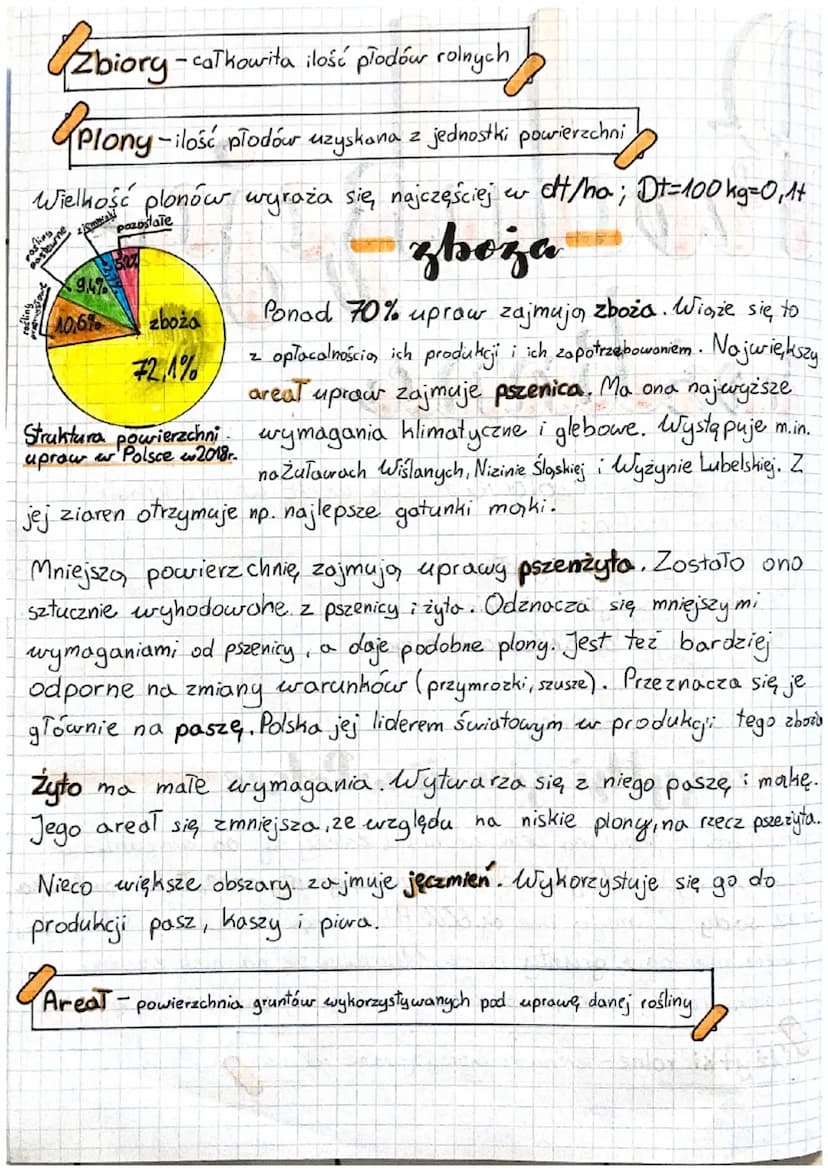 Zbiory - całkowita ilość płodów rolnych
Plony - ilość płodów uzyskana z jednostki powierzchni
Wielkość plonów wyraża się najczęściej w dt/ha; Dt=100kg=0,1t
zboża
rośliny pastewne
ziemniaki
pozostałe
rośliny przemysłowe
9,4%
5,2%
10,6%
zboża
72,1%
Struktura powierzchni
upraw w Polsce w 2018r.
Ponad 70% upraw zajmują zboża. Wiąże się to
z opłacalnością ich produkcji i ich zapotrzebowaniem. Największy
areał upraw zajmuje pszenica. Ma ona najwyższe
wymagania klimatyczne i glebowe. Występuje m.in.
na Żuławach Wiślanych, Nizinie Śląskiej i Wyżynie Lubelskiej. Z
jej ziaren otrzymuje np. najlepsze gatunki mąki.
Mniejszą powierzchnię zajmują uprawy pszenżyta. Zostało ono
sztucznie wyhodowane z pszenicy i żyta. Odznacza się mniejszymi
wymaganiami od pszenicy, a daje podobne plony. Jest też bardziej
odporne na zmiany warunków (przymrozki, szusze). Przeznacza się je
głównie na paszę. Polska jej liderem światowym w produkcji tego zboża
Żyto ma małe wymagania. Wytwarza się z niego paszę i mąkę.
Jego areał się zmniejsza, ze względu na niskie plony, na rzecz pszeżyta.
Nieco większe obszary zajmuje jęczmień. Wykorzystuje się go do
produkcji pasz, kaszy i piwa.
Areał - powierzchnia gruntów wykorzystywanych pod uprawę danej rośliny